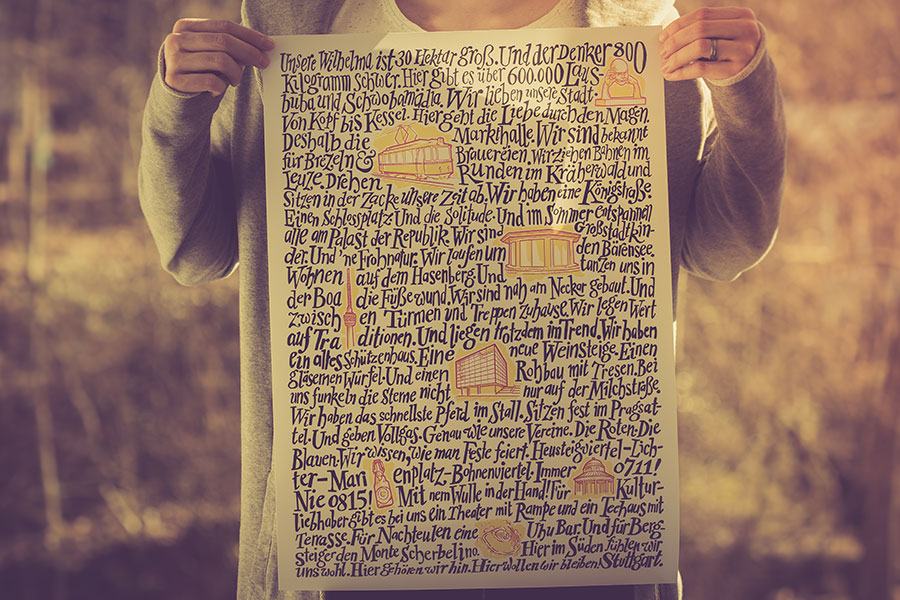 Unsere Wilhelma ist 30 Hektar groß. Und der Denker 800
Kilogramm schwer. Hier gibt es über 600.000 Laus-
buba und Schwobamädla. Wir lieben unsere Stadt
Von Kopf bis Kessel. Hier geht die Liebe durch den Magn.
Deshalb die Markthalle. Wir sind bekannt
für Brezeln & Brauereien. Wir ziehen Bahnen im
Leuze. Drehen Runden im Kräherwald und
Sitzen in der Zacke unsere Zeit ab. Wir haben eine Königstraße
Einen Schlossplatz Und die Solitude. Und im Sommer entspannen
alle am Palast der Republik. Wir sind Großstadtkin-
der. Und 'ne Frohnatur. Wir laufen um den Bärensee.
Wohnen auf dem Hasenberg. Und tanzen uns in
der Boa die Füße wund. Wir sind nah am Neckar gebaut. Und
zwisch en Türmen und Treppen zuhause. Wir legen Wert
auf Tra ditionen. Und liegen trotzdem im Trend. Wir haben
ein altes Schützenhaus. Eine neue Weinsteige. Einen
gläsernen Würfel. Und einen Rohbau mit Tresen. Bei
uns funkeln die Sterne nicht nur auf der Milchstraße.
Wir haben das schnellste Pferd im Stall. Sitzen fest im Pragsat-
tel. Und geben Vollgas. Genau wie unsere Vereine. Die Roten. Die
Blauen. Wir wissen, wie man Feste feiert. Heusteigviertel-Lich-
ter-Mari enplatz-Bohnenviertel. Immer 0711!
Nie 0815! Mit nem Wulle in der Hand! Für Kultur-
liebhaber gibt es bei uns ein Theater mit Rampe und ein Teehaus mit
Terrasse. Für Nachteulen eine Uhu Bar. Und für Berg-
steiger den Monte Scherbelino. Hier im Süden fühlen wir
uns wohl. Hier gehören wir hin. Hier wollen wir bleiben! Stuttgart.